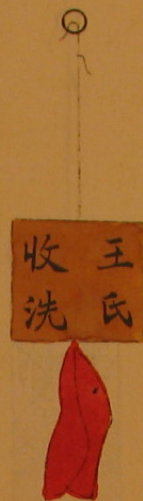 王氏
收洗